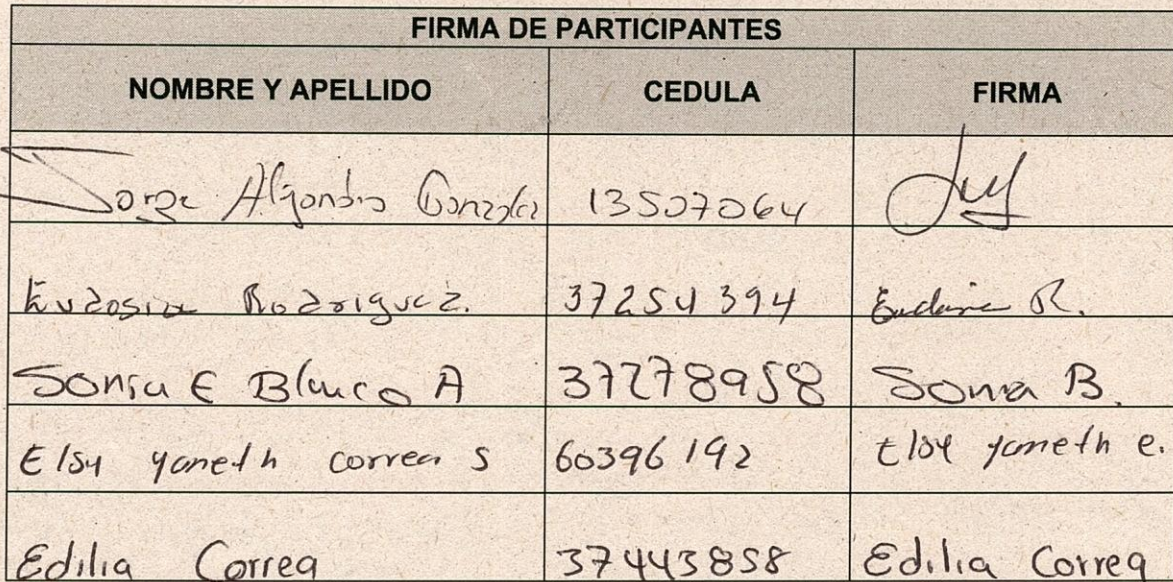 FIRMA DE PARTICIPANTES
NOMBRE Y APELLIDO CEDULA FIRMA
Jorge Alejandro Gonzalez 13507064
Eudosia Rodriguez. 37254394 R.
Sonia E Blanco A 37278958 Sonia B.
Elsy yaneth correa s 60396192 Elsy yaneth c.
Edilia Correa 37443858 Edilia Correa